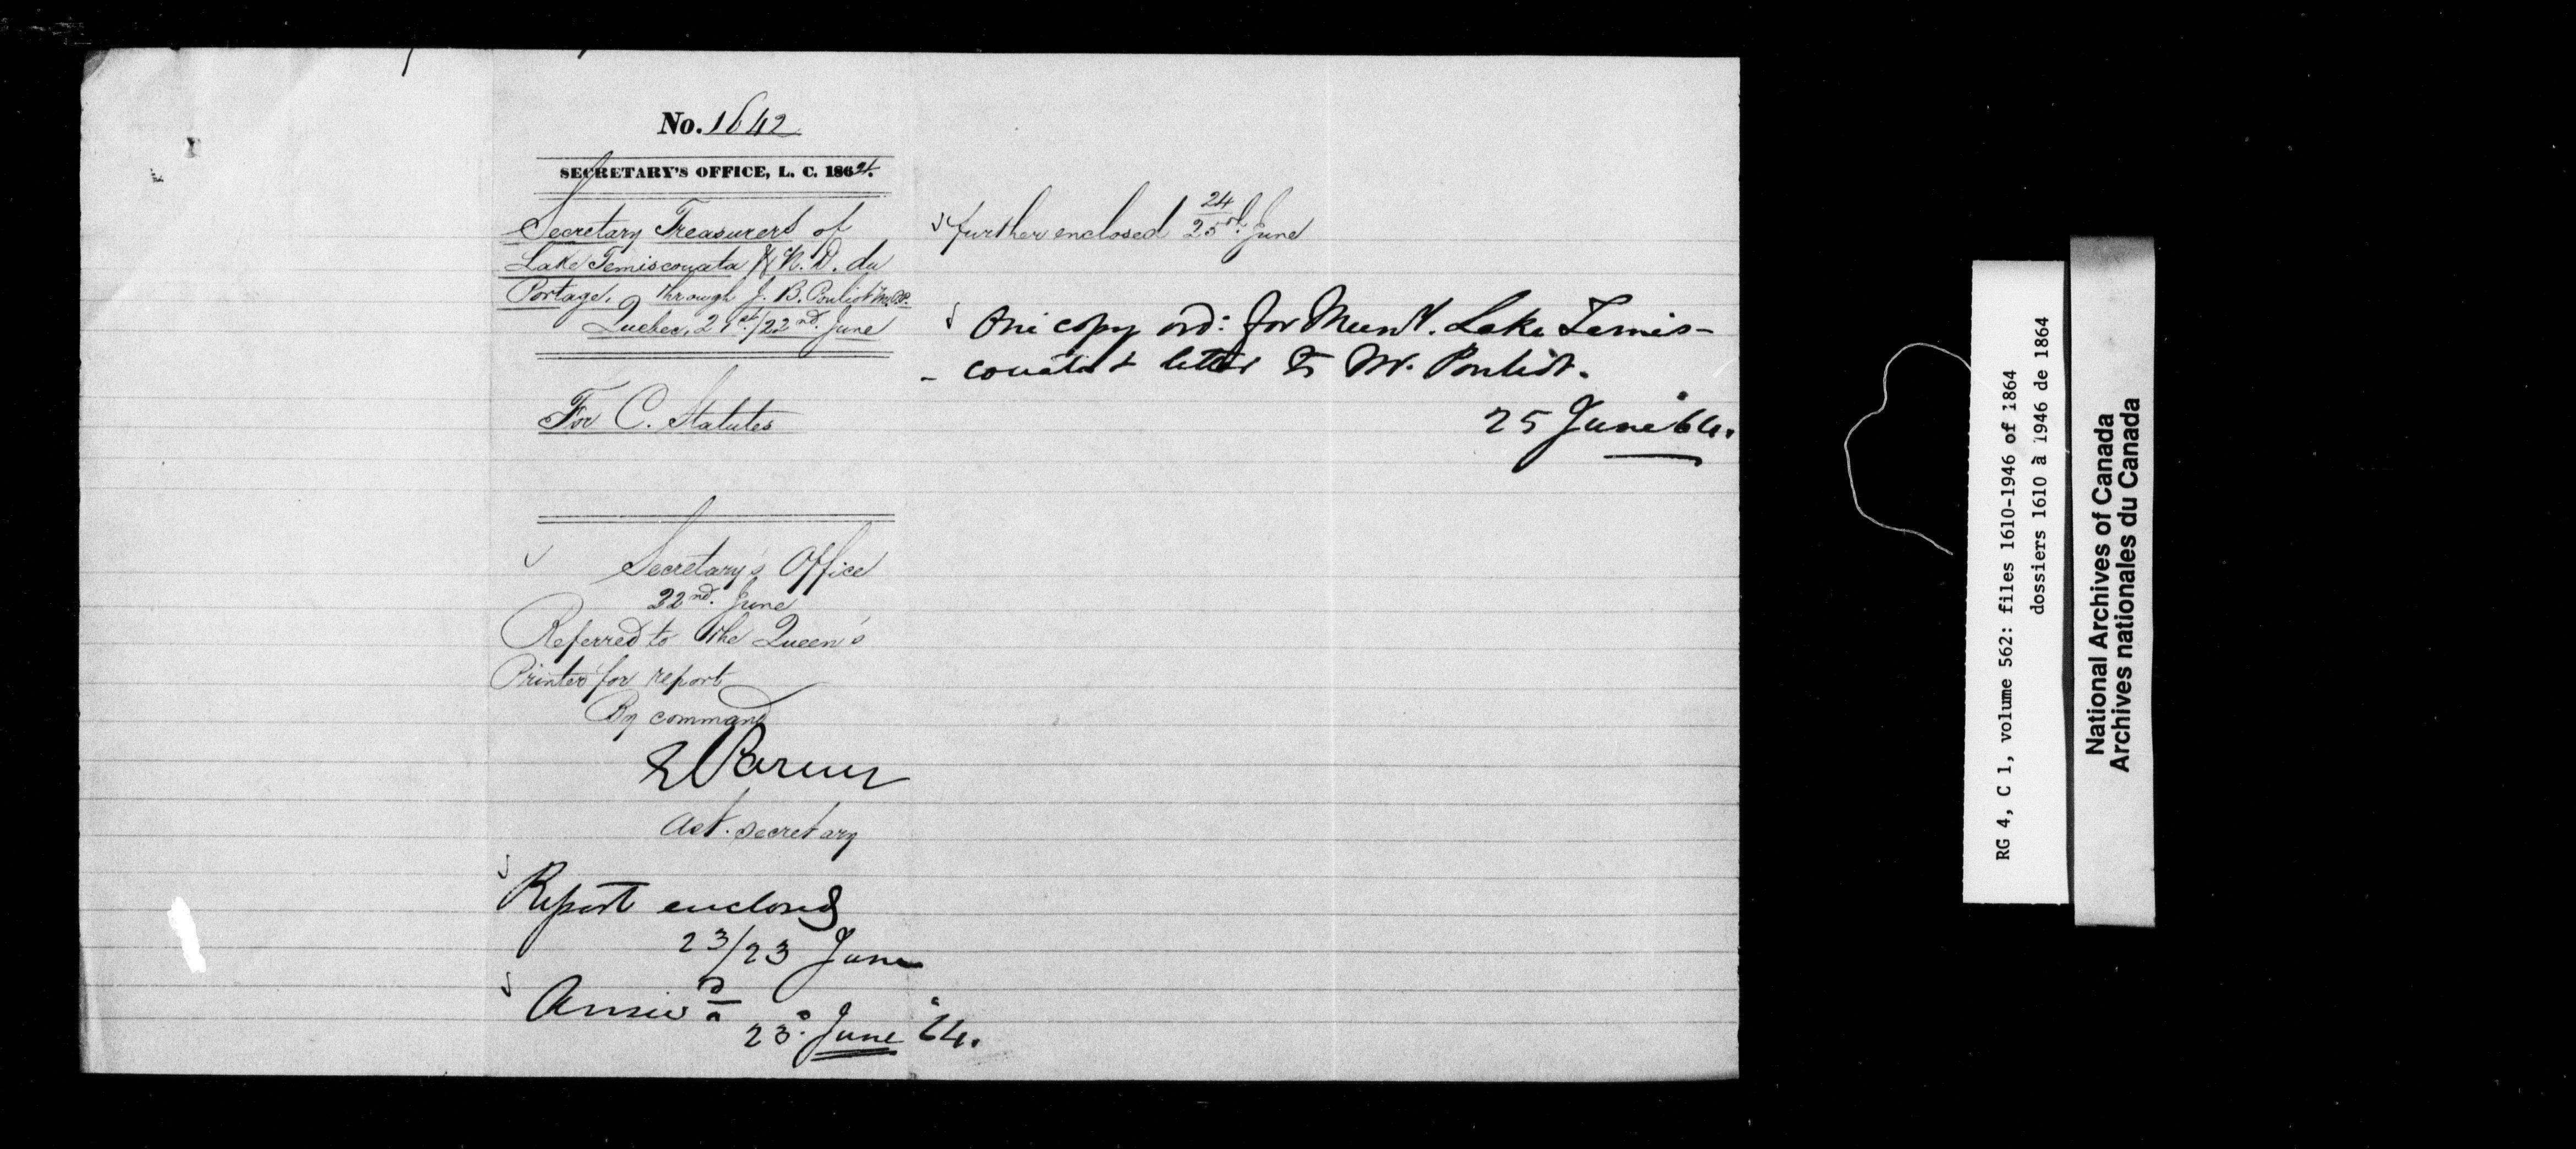 No. 1642
SECRETARY'S OFFICE, L. C. 1864.
Secretary Treasurers of
Lake Temiscouata & N. D. du
Portage, through J. B. Pouliot M.P.P.
Quebec, 21st/22nd June
For C. Statutes
Secretary's Office
22nd. June
Referred to the Queen's
Printer for report
By command
Act. Secretary
Report enclosed
23/23 June
Answd
23. June '64.
further enclosed 24/25th June
One copy ord: for Muny. Lake Temis-
- couata & letter to Mr. Pouliot.
25 June '64.
RG 4, C 1, volume 562: files 1610-1946 of 1864
dossiers 1610 à 1946 de 1864
National Archives of Canada
Archives nationales du Canada